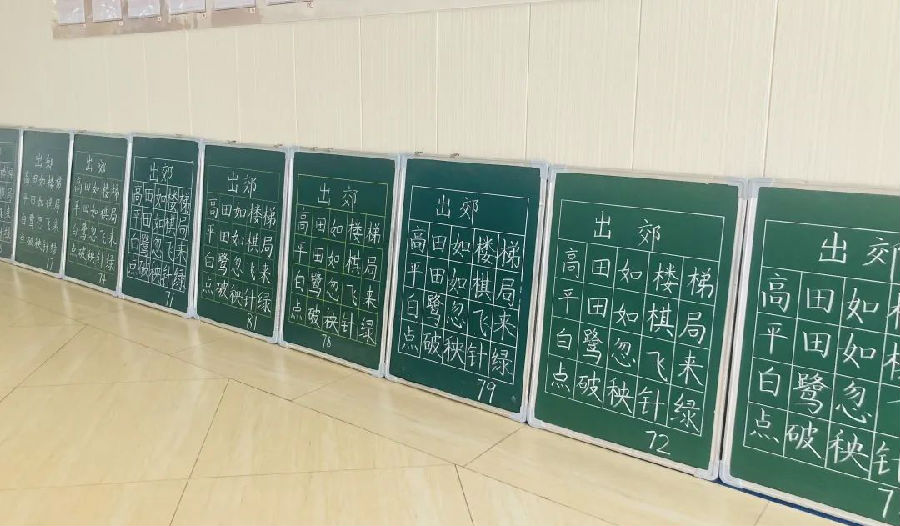 出郊
高田如楼梯
平田如棋局
白鹭忽飞来
点破秧针绿
出郊
高田如楼梯
平田如棋局
白鹭忽飞来
点破秧针绿
74
出郊
高田如楼梯
平田如棋局
白鹭忽飞来
点破秧针绿
71
出郊
高田如楼梯
平田如棋局
白鹭忽飞来
点破秧针绿
81
出郊
高田如楼梯
平田如棋局
白鹭忽飞来
点破秧针绿
78
出郊
高田如楼梯
平田如棋局
白鹭忽飞来
点破秧针绿
79
出郊
高田如楼梯
平田如棋局
白鹭忽飞来
点破秧针绿
72
出郊
高田如
平田如
白鹭忽
点破秧针
7